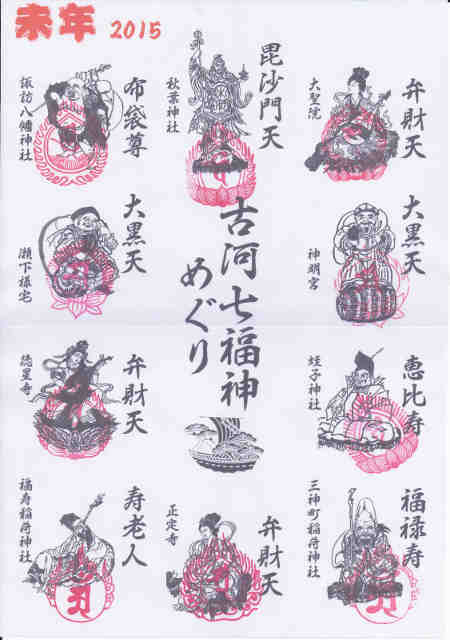 未年 2015
毘沙門天
秋葉神社
弁財天
大聖院
布袋尊
諏訪八幡神社
大黒天
神明宮
古河七福神
めぐり
大黒天
瀬下様宅
恵比寿
蛭子神社
弁財天
徳星寺
福禄寿
三神町稲荷神社
弁財天
正定寺
寿老人
福寿稲荷神社